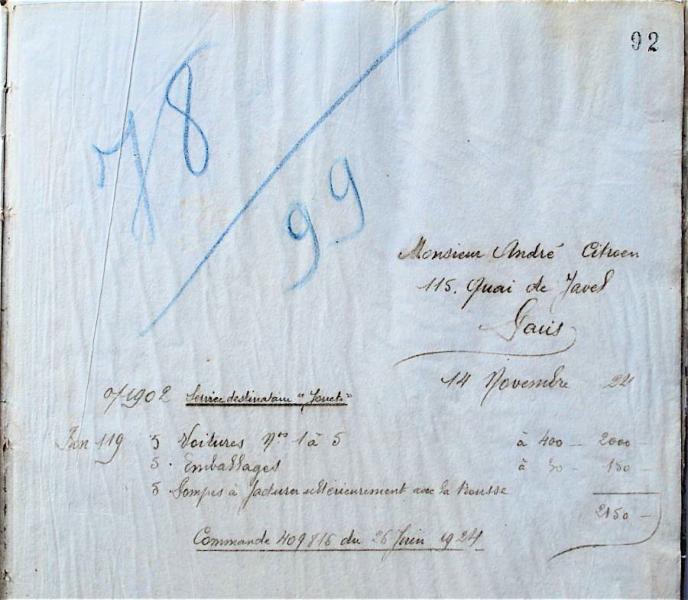 92
78
99
Monsieur André Citroen
115. Quai de Javel
Paris
14 Novembre 24
1902 Service destinataire "Jouets"
Bon 119 5 Voitures Nos 1 à 5 à 400 - 2000 -
5 Emballages à 30 - 150 -
5 Pompes à facturer ultérieurement avec la Housse
2150 -
Commande 409816 du 26 Juin 1924